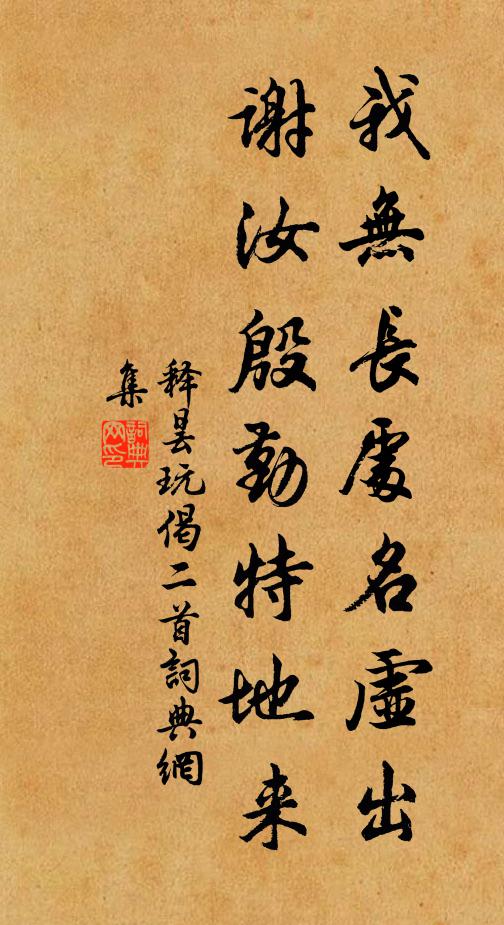 我無長處名虛出
謝汝殷勤特地来
释昙玩偈二首詞典網
集
詞典
网印